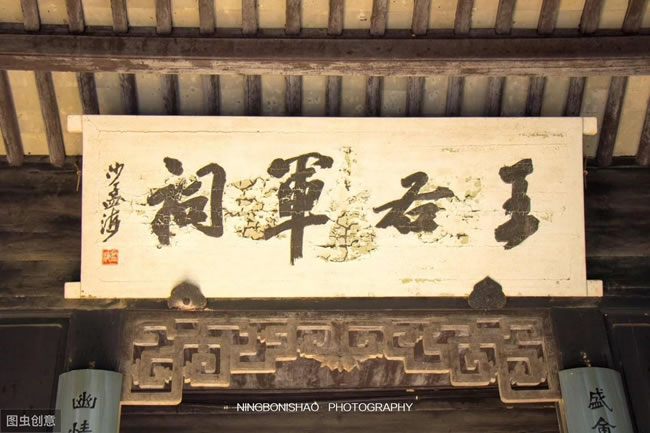 王右軍祠
沙孟海
幽情
盛會
NINGBONISHAO PHOTOGRAPHY
图虫创意